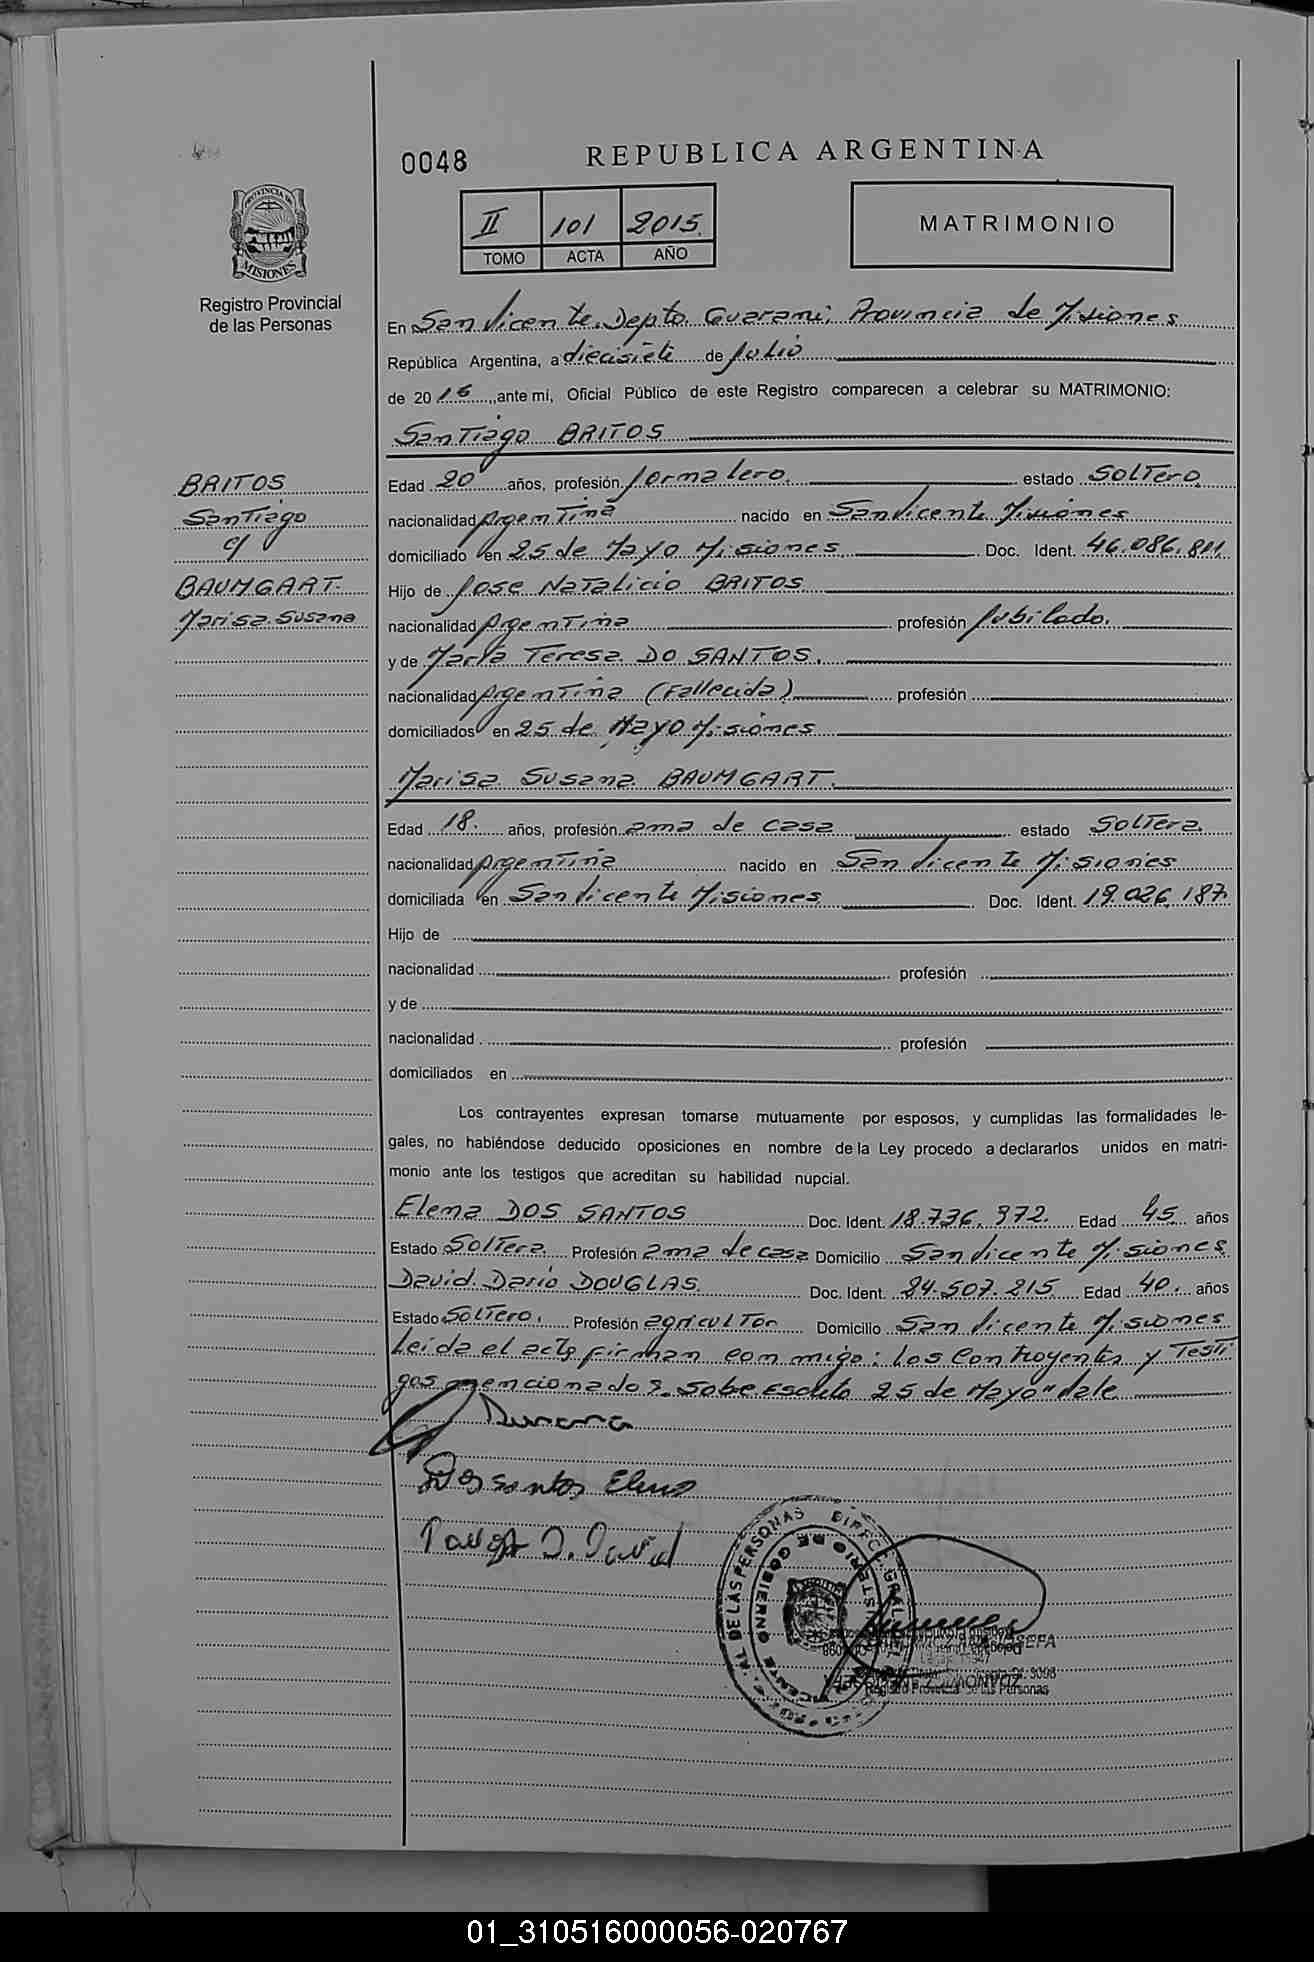 0048
REPUBLICA ARGENTINA
II 101 2015
TOMO ACTA AÑO
MATRIMONIO
PROVINCIA DE
MISIONES
Registro Provincial
de las Personas
En San Vicente. Depto Guarani, Provincia de Misiones
República Argentina, a diecisiete de Julio
de 2015 ante mi, Oficial Público de este Registro comparecen a celebrar su MATRIMONIO:
Santiago BRITOS
BRITOS
Santiago
c/
BAUMGART.
Marisa Susana
Edad 20 años, profesión Jornalero. estado Soltero.
nacionalidad Argentina nacido en San Vicente Misiones
domiciliado en 25 de Mayo Misiones Doc. Ident. 46.086.811
Hijo de Jose Natalicio BRITOS
nacionalidad Argentina profesión Jubilado.
y de Maria Teresa DO SANTOS.
nacionalidad Argentina (Fallecida) profesión
domiciliados en 25 de Mayo Misiones
Marisa Susana BAUMGART.
Edad 18. años, profesión ama de casa estado Soltera.
nacionalidad Argentina nacido en San Vicente Misiones
domiciliada en San Vicente Misiones Doc. Ident. 19.026.187
Hijo de
nacionalidad profesión
y de
nacionalidad profesión
domiciliados en
Los contrayentes expresan tomarse mutuamente por esposos, y cumplidas las formalidades le-
gales, no habiéndose deducido oposiciones en nombre de la Ley procedo a declararlos unidos en matri-
monio ante los testigos que acreditan su habilidad nupcial.
Elena DOS SANTOS Doc. Ident. 18.736.972. Edad 45 años
Estado Soltera Profesión ama de casa Domicilio San Vicente Misiones
David Dario DOUGLAS. Doc. Ident. 24.507.215 Edad 40. años
Estado Soltero. Profesión agricultor Domicilio San Vicente Misiones
Leida el acta firman conmigo: los Contrayentes y Testi
gos mencionados. Sobre Escrito 25 de Mayo" Vale
Dos santos Elena
D. David
DE LAS PERSONAS
DE GOBIERNO
Registro Provincial de las Personas
01_310516000056-020767